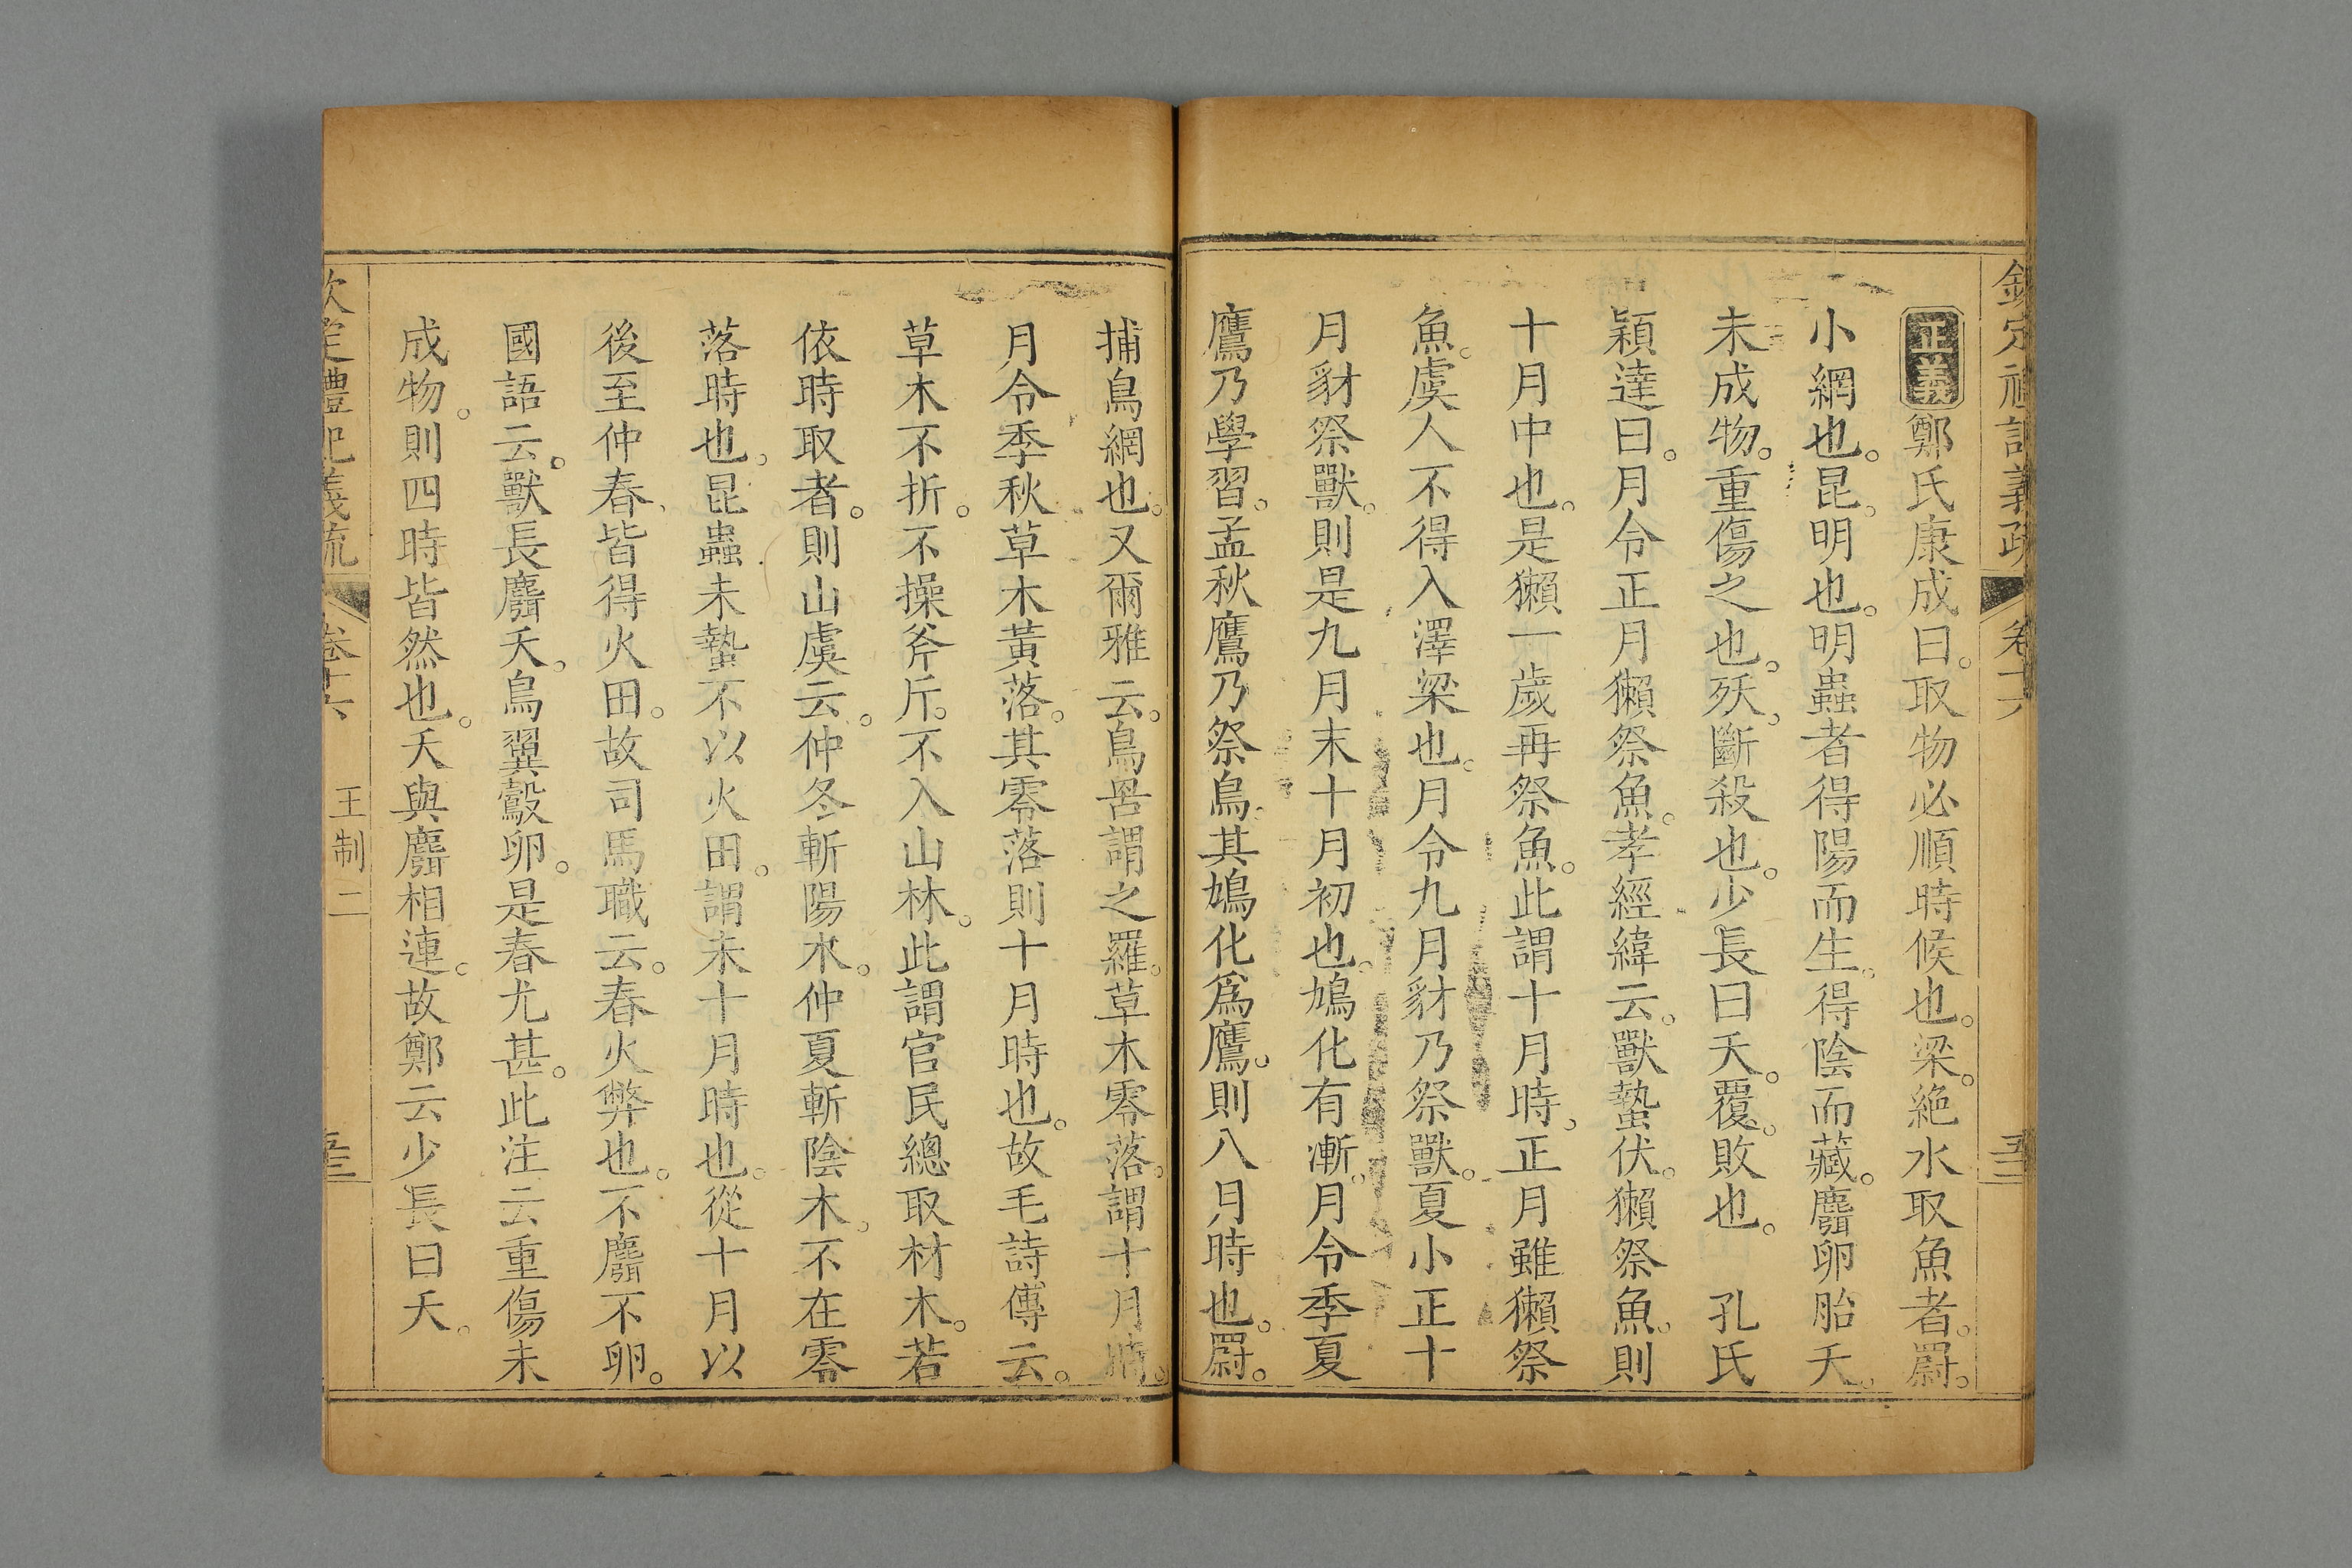 欽定禮記義疏 卷十六 五二
正義鄭氏康成曰。取物必順時候也。梁。絶水取魚者。罻。
小網也。昆。明也。明蟲者得陽而生。得陰而藏。麛卵胎夭。
未成物。重傷之也。殀。斷殺也。少長曰夭。覆。敗也。 孔氏
穎達曰。月令正月獺祭魚。孝經緯云。獸蟄伏。獺祭魚。則
十月中也。是獺一歲再祭魚。此謂十月時。正月雖獺祭
魚。虞人不得入澤梁也。月令九月豺乃祭獸。夏小正十
月豺祭獸。則是九月末十月初也。鳩化有漸。月令季夏
鷹乃學習。孟秋鷹乃祭鳥。其鳩化爲鷹。則八月時也。罻。
捕鳥網也。又爾雅云。鳥罟謂之羅。草木零落。謂十月時。
月令季秋草木黃落。其零落則十月時也。故毛詩傳云。
草木不折。不操斧斤。不入山林。此謂官民總取材木。若
依時取者。則山虞云。仲冬斬陽木。仲夏斬陰木。不在零
落時也。昆蟲未蟄不以火田。謂未十月時也。從十月以
後至仲春、皆得火田。故司馬職云。春火弊也。不麛不卵。
國語云。獸長麛夭。鳥翼鷇卵。是春尤甚。此注云重傷未
成物。則四時皆然也。夭與麛相連。故鄭云少長曰夭。
欽定禮記義疏 卷十六 王制二 五三